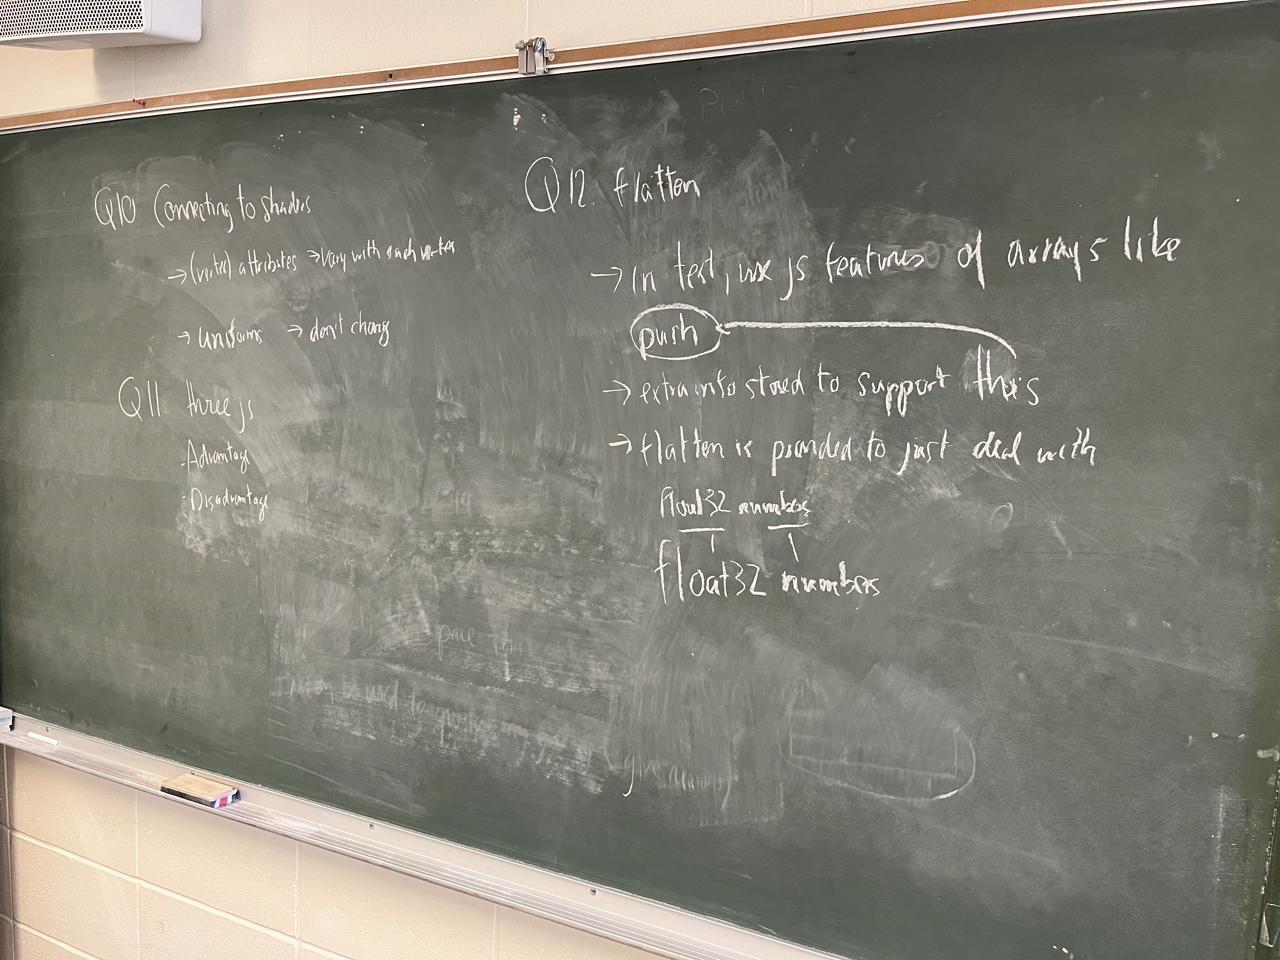 Q10. Connecting to shaders
→ (vertex) attributes → Vary with each vertex
→ uniforms → don't change
Q11. three js
- Advantage
- Disadvantage
Q12. flatten
→ In test, use js features of arrays like
push
→ extra info stored to support this
→ flatten is provided to just deal with
float32 numbers
float32 numbers